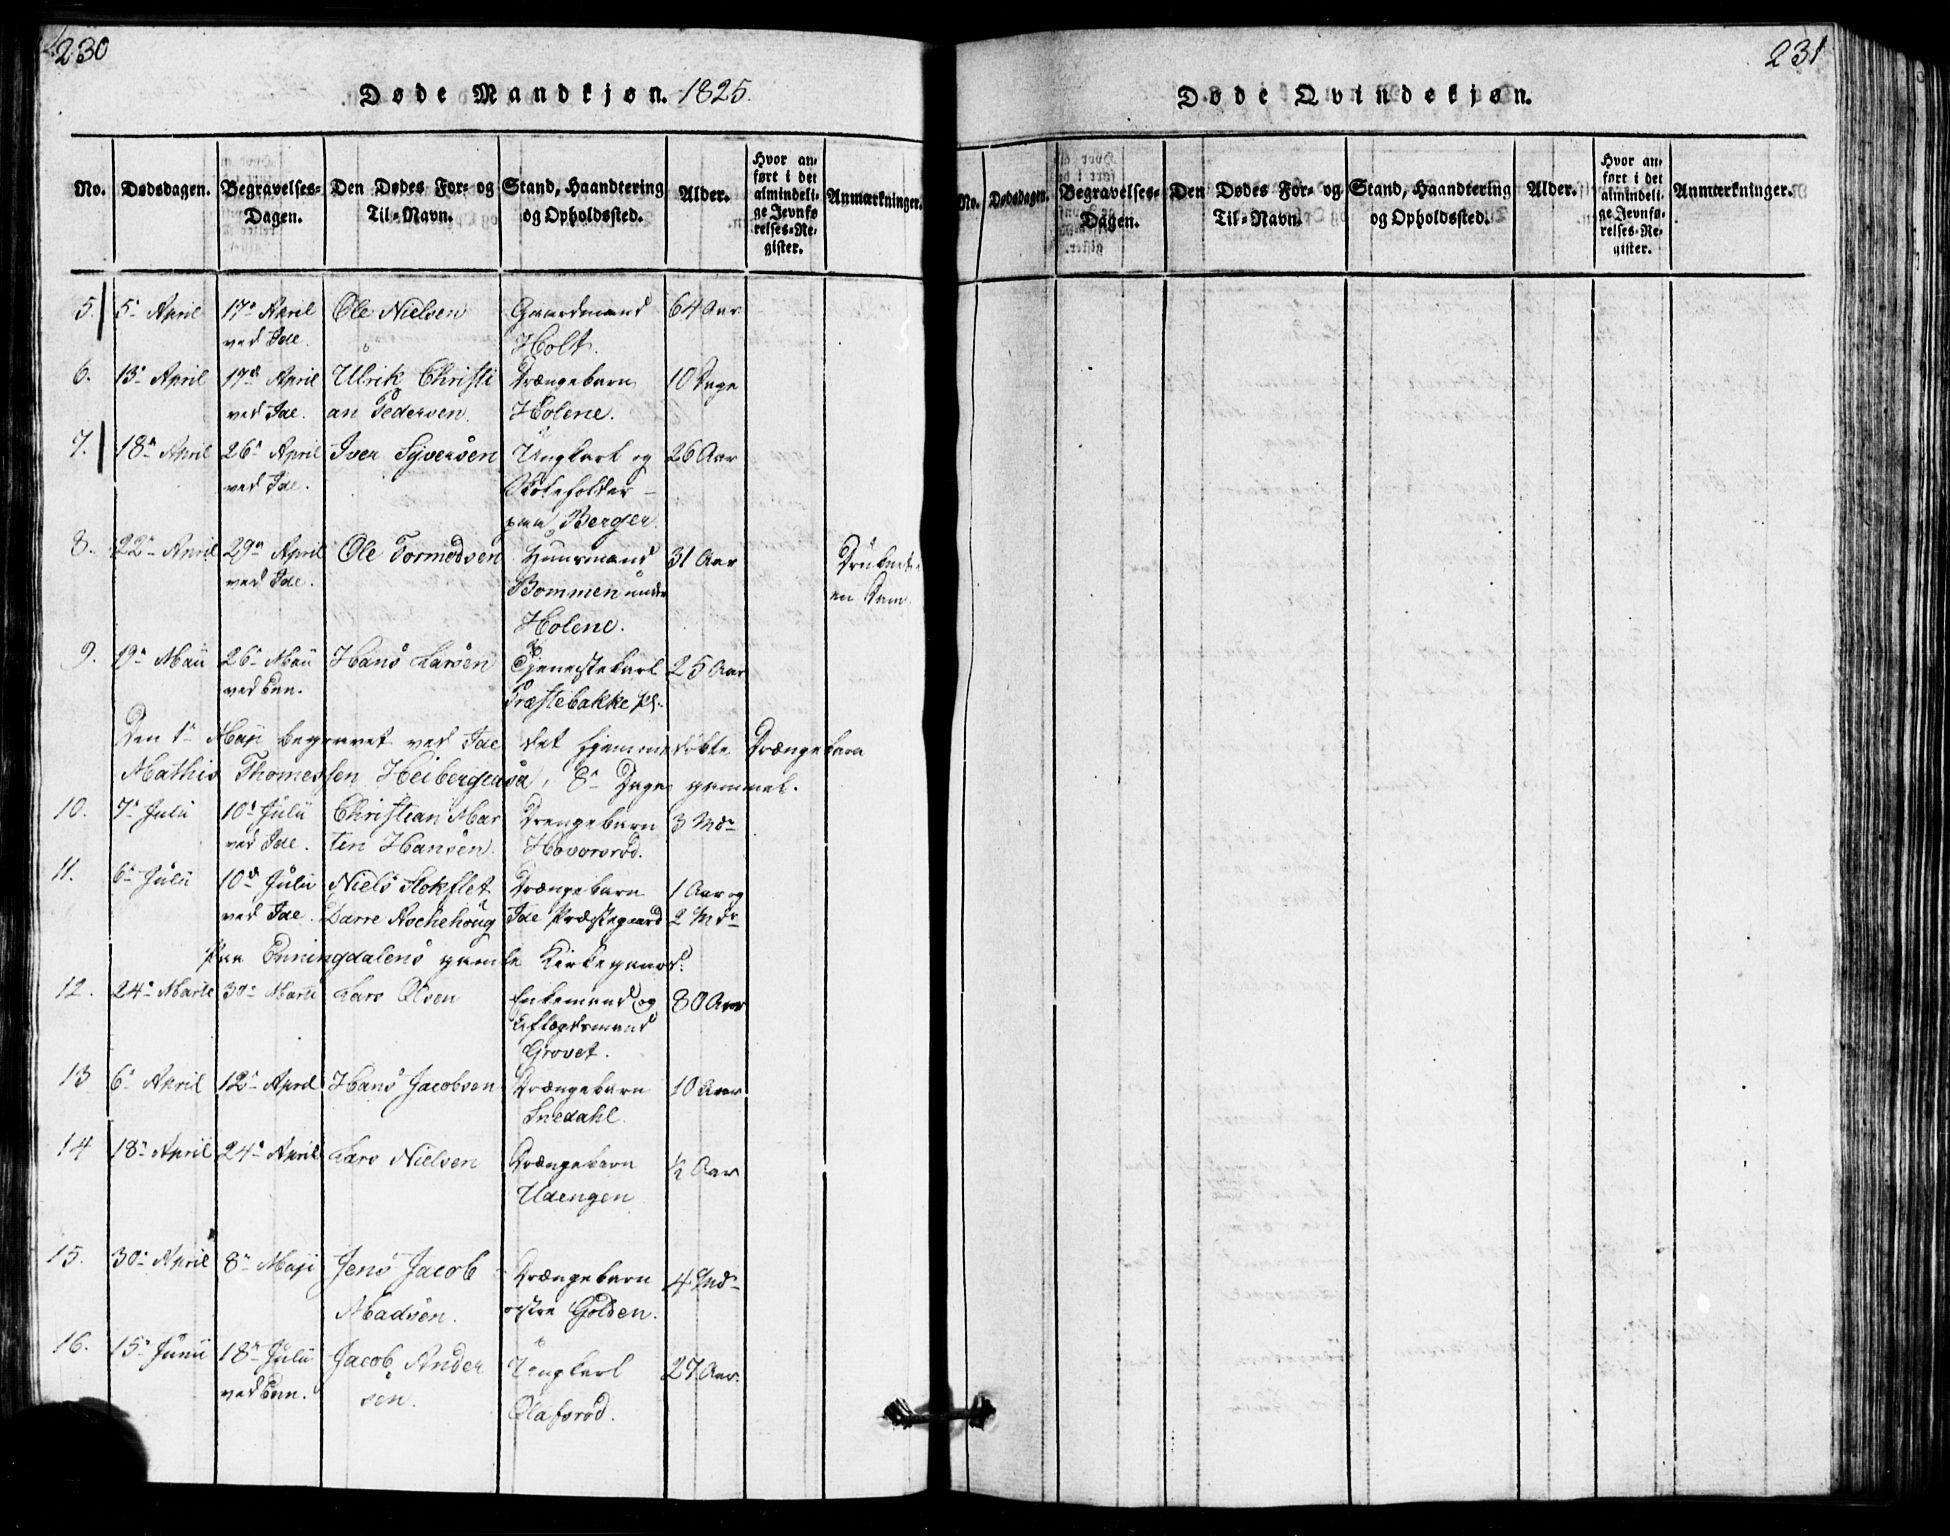 230
Døde Mandkjøn. 1825.
No. Dødsdagen. Begravelses-Dagen. Den Dødes For- og Til-Navn. Stand, Haandtering og Opholdssted. Alder. Hvor anført i det almindelige Jevnførelses-Register. Anmærkninger.
5. 5te April 17de April Ole Nielsen Gaardmand 64 Aar
ved Ide. Holt.
6. 13de April 17de April Ulrik Christi Drængebarn 10 Dage
ved Ide. an Pedersen. Holene.
7. 18de April 26de April Iver Syversen Ungkarl og 26 Aar
ved Ide.
paa Berger.
8. 22de April 29de April Ole Tormodsen Huusmand 31 Aar Druknet i
ved Ide. Bommen under en Dam.
Holene.
9. 19de Maii 26de Maii Hans Larsen Tjenestekarl 25 Aar
ved Enn. Præstebakke Pl.
Den 1te Maji begravet ved Ide det hjemmedøbte Drængebarn
Mathis Thomessen Heibergeraasa, 8te Dage gammel.
10. 7de Julii 10de Julii Christian Mar Drengebarn 3 Mdr
ved Ide. ten Hansen. Hovorsrød.
11. 6te Julii 10de Julii Niels Stokflet Drængebarn 1 Aar og
ved Ide. Darre Aschehoug Ide Præstegaard 2 Mdr
Paa Enningdalens gamle Kirkegaard:
12. 24de Marti 30te Marti Lars Olsen Enkemand og 80 Aar
Aflægdsmand
Grovet.
13 6te April 12te April Hans Jacobsen Drængebarn 10 Aar
Snedahl.
14 18de April 24de April Lars Nielsen Drængebarn ½ Aar
Udengen
15. 30te April 8de Maji Jens Jacob Drængebarn 4 Mdr
Madsen. østre Golden.
16. 15de Junii 18de Julii Jacob Ander Ungkarl 27 Aar.
ved Enn. sen. Olafsrød.
231
Døde Qvindekjøn.
No. Dødsdagen. Begravelses-Dagen. Den Dødes For- og Til-Navn. Stand, Haandtering og Opholdssted. Alder. Hvor anført i det almindelige Jevnførelses-Register. Anmærkninger.